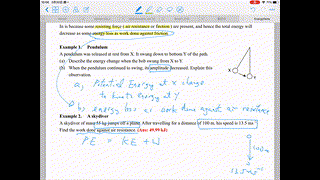 In is because some resisting force ( air resistance or friction ) are present, and hence the total energy will
decrease as some energy loss as work done against friction.
Example 1. Pendulum
A pendulum was released at rest from X. It swung down to bottom Y of the path.
(a) Describe the energy change when the bob swung from X to Y.
(b) When the pendulum continued to swing, its amplitude decreased. Explain this
observation.
X
Y
a, Potential Energy at X change
to kinetic Energy at Y
b) energy loss as work done against air resistance
Example 2. A skydiver
A skydiver of mass 55 kg jumps off a plane. After travelling for a distance of 100 m, his speed is 13.5 ms⁻¹
Find the work done against air resistance. (Ans: 49.99 kJ)
PE = KE + W
100m
13.5 ms⁻¹